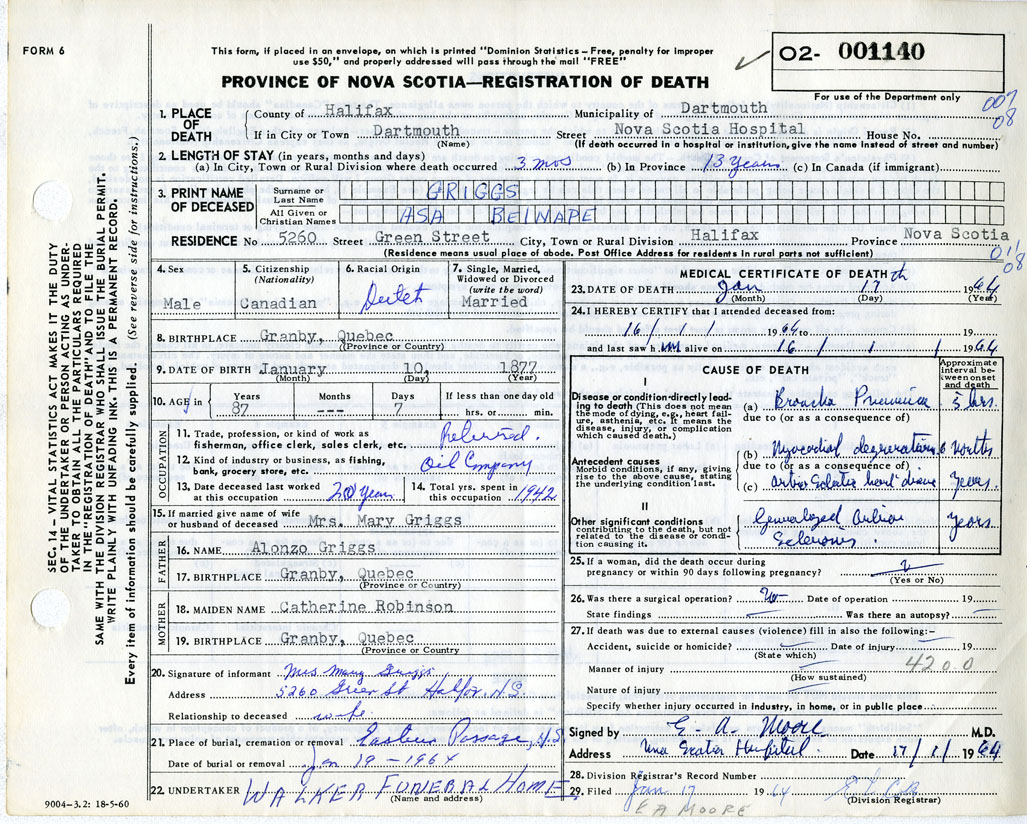 FORM 6
This form, if placed in an envelope, on which is printed "Dominion Statistics – Free, penalty for improper
use $50," and properly addressed will pass through the mail "FREE"
PROVINCE OF NOVA SCOTIA—REGISTRATION OF DEATH
02- 001140
For use of the Department only
007
08
1. PLACE OF DEATH
County of Halifax Municipality of Dartmouth
If in City or Town Dartmouth Street Nova Scotia Hospital House No.
(Name) (If death occurred in a hospital or institution, give the name instead of street and number)
2. LENGTH OF STAY (in years, months and days)
(a) In City, Town or Rural Division where death occurred 3 mos (b) In Province 13 Years (c) In Canada (if immigrant)
3. PRINT NAME OF DECEASED
Surname or Last Name GRIGGS
All Given or Christian Names ASA BELNAPE
RESIDENCE No 5260 Street Green Street City, Town or Rural Division Halifax Province Nova Scotia
(Residence means usual place of abode. Post Office Address for residents in rural parts not sufficient)
011
08
4. Sex
Male
5. Citizenship
(Nationality)
Canadian
6. Racial Origin
Dutch
7. Single, Married,
Widowed or Divorced
(write the word)
Married
8. BIRTHPLACE Granby, Quebec
(Province or Country)
9. DATE OF BIRTH January 10, 1877
(Month) (Day) (Year)
10. AGE in
Years Months Days If less than one day old
87 --- 7 hrs. or min.
OCCUPATION
11. Trade, profession, or kind of work as
fisherman, office clerk, sales clerk, etc. Retired.
12. Kind of industry or business, as fishing,
bank, grocery store, etc. Oil Company
13. Date deceased last worked
at this occupation 20 Years
14. Total yrs. spent in
this occupation 1942
15. If married give name of wife
or husband of deceased Mrs. Mary Griggs
FATHER
16. NAME Alonzo Griggs
17. BIRTHPLACE Granby, Quebec
(Province or Country)
MOTHER
18. MAIDEN NAME Catherine Robinson
19. BIRTHPLACE Granby, Quebec
(Province or Country
20. Signature of informant Mrs Mary Griggs
Address 5260 Green St Halifax N.S.
Relationship to deceased wife
21. Place of burial, cremation or removal Eastern Passage, N.S
Date of burial or removal Jan 19 - 1964
22. UNDERTAKER WALKER FUNERAL HOME
(Name and address)
MEDICAL CERTIFICATE OF DEATH
23. DATE OF DEATH Jan 17th 1964
(Month) (Day) (Year)
24. I HEREBY CERTIFY that I attended deceased from:
16 / 1 / 1964 to 19
and last saw h im alive on 16 / 1 / 1964
CAUSE OF DEATH
Approximate
interval be-
tween onset
and death
I
Disease or condition directly lead-
ing to death (This does not mean
the mode of dying, e.g., heart fail-
ure, asthenia, etc. It means the
disease, injury, or complication
which caused death.)
(a) Broncho Pneumonia 5 hrs.
due to (or as a consequence of)
Antecedent causes
Morbid conditions, if any, giving
rise to the above cause, stating
the underlying condition last.
(b) Myocardial degeneration 6 months
due to (or as a consequence of)
(c) Arterio Sclerotic heart disease Years.
II
Other significant conditions
contributing to the death, but not
related to the disease or condi-
tion causing it.
Generalized Arterio Years
Sclerosis.
25. If a woman, did the death occur during
pregnancy or within 90 days following pregnancy?
(Yes or No)
26. Was there a surgical operation? No Date of operation 19
State findings Was there an autopsy?
27. If death was due to external causes (violence) fill in also the following:–
Accident, suicide or homicide? Date of injury 19
(State which)
4200
Manner of injury
(How sustained)
Nature of injury
Specify whether injury occurred in industry, in home, or in public place
Signed by E. A. Moore M.D.
Address Nova Scotia Hospital. Date 17/1/1964
28. Division Registrar's Record Number
29. Filed Jan 17 1964
(Division Registrar)
E A MOORE
9004–3.2: 18-5-60
SEC. 14 – VITAL STATISTICS ACT MAKES IT THE DUTY
OF THE UNDERTAKER OR PERSON ACTING AS UNDER-
TAKER TO OBTAIN ALL THE PARTICULARS REQUIRED
IN THE "REGISTRATION OF DEATH" AND TO FILE THE
SAME WITH THE DIVISION REGISTRAR WHO SHALL ISSUE THE BURIAL PERMIT.
WRITE PLAINLY WITH UNFADING INK. THIS IS A PERMANENT RECORD.
Every item of information should be carefully supplied. (See reverse side for instructions.)